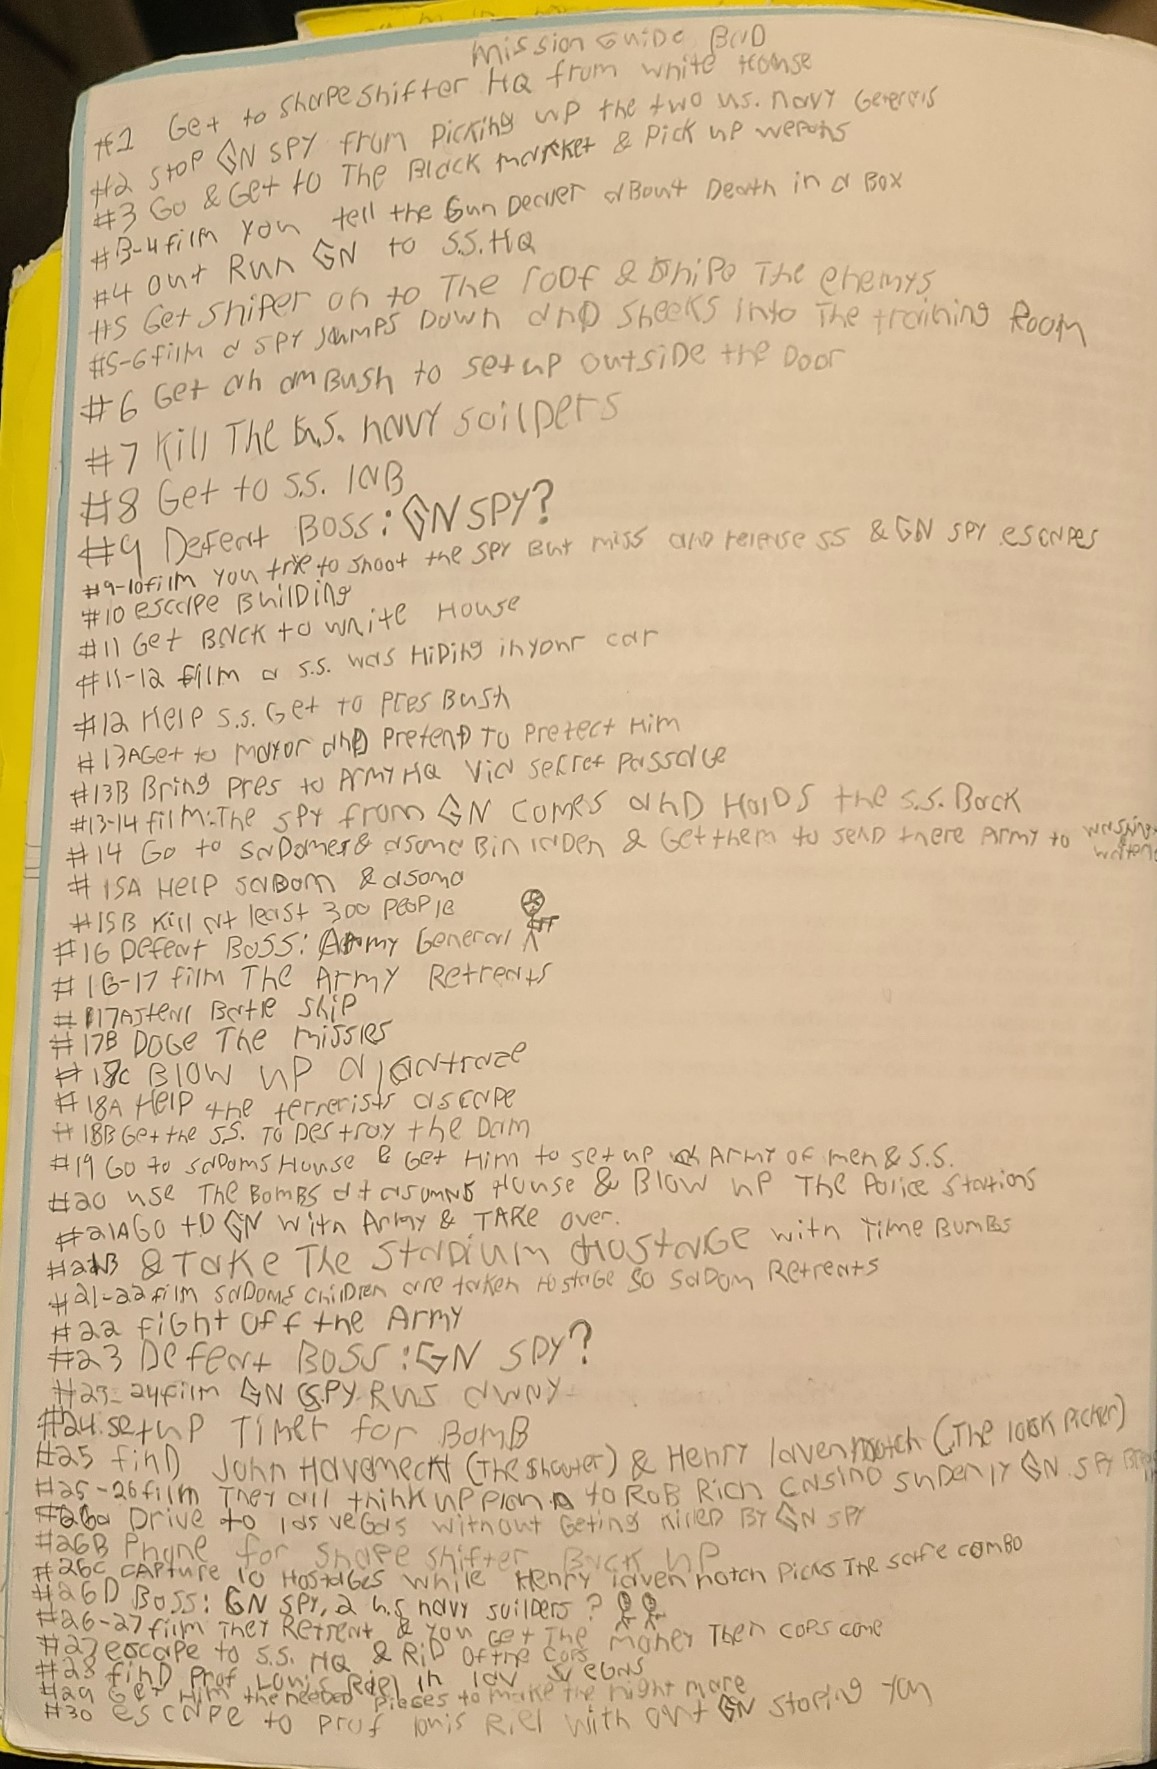 Mission Guide Bad
#1 Get to shapeshifter HQ from white House
#2 stop GN SPY from Picking up the two u.s. navy Generels
#3 Go & Get to The Black market & Pick up wepons
#3-4film you tell the Gun Dealer about Death in a Box
#4 out Run GN to S.S.HQ
#5 Get sniper on to The roof & Snipe The enemys
#5-6film a spy jumps Down and sneeks into The training Room
#6 Get an amBush to setup outside the Door
#7 Kill The u.s. navy soilders
#8 Get to S.S. lAB
#9 Defeat BOSS: GN SPY?
#9-10film you trie to shoot the spy But miss and relerse ss & GN spy escapes
#10 esccipe Building
#11 Get Back to white House
#11-12 film a s.s. was HiDing in your car
#12 Help s.s. Get to pres Bush
#13AGet to mayor and Pretend To Pretect Him
#13B Bring pres to Army HQ Via secret Passage
#13-14 film:The spy from GN comes and Holds the s.s. Back
#14 Go to saDomes & asoma Bin laDen & Get them to send there Army to
#15A Help saDom & asoma
#15B Kill At least 300 people
#16 Defeat Boss: Army General
#16-17 film The Army Retreats
#17Asteal Batle ship
#17B Doge The missles
#18c Blow up
#18A Help the terrerists ascape
#18B Get the s.s. To Destroy the Dam
#19 Go to saDoms House & Get Him to setup Army of men & s.s.
#20 use The Bombs at asomas House & Blow up The Police stations
#21AGo to GN with Army & TAke over.
#21B & Take The Stadium Hostage with Time Bombs
#21-22film saDoms children are taken Hostage so saDom Retreats
#22 fight off the Army
#23 Defeat BOSS:GN SPY?
#23-24film GN SPY Runs away
#24.setup Timer for BomB
#25 find John Havemecht (The shooter) & Henry lavennotch (The lock Picker)
#25-26film They all think up Plan to RoB Rich casino sudenly GN spy
#26a Drive to las vegas without Geting Killed By GN spy
#26B Phone for shape shifter Back up
#26C capture 10 Hostages while Henry lavennotch Picks The safe combo
#26D Boss: GN spy, 2 u.s navy soilders?
#26-27 film They Retreat & you Get The money Then cops come
#27 escape to s.s. HQ & RiD of the cops
#28 find Prof Louis Riel in las vegas
#29 Get Him the needed Pieces to make the nightmare
#30 escape to prof louis Riel with out GN stoping you